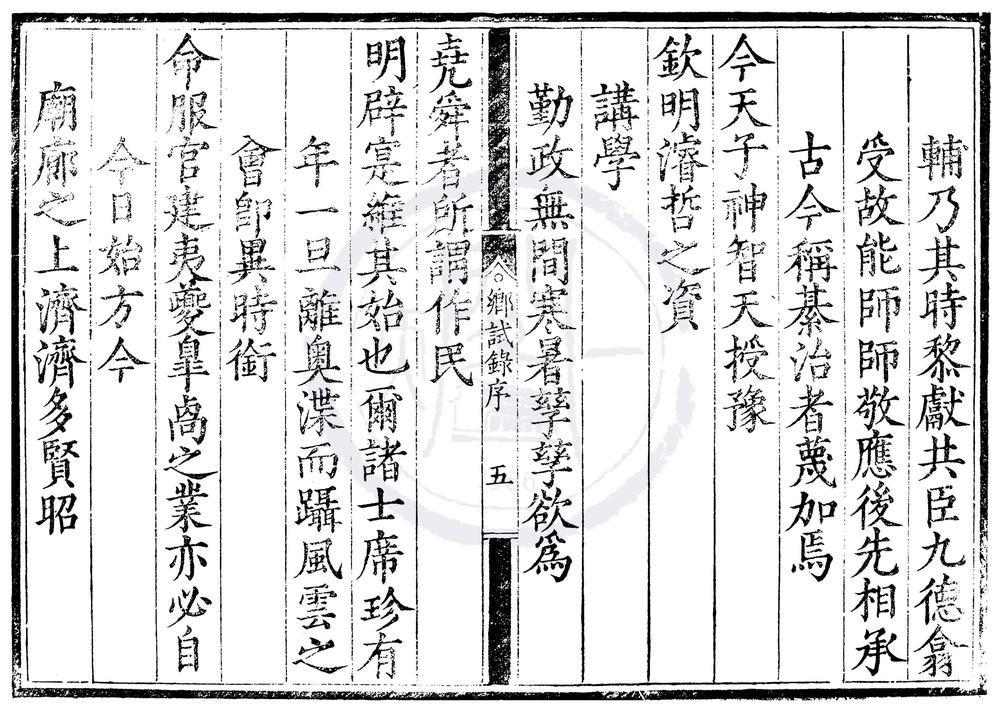 輔乃其時黎獻共臣九德翕
受故能師師敬應後先相承
古今稱綦治者蔑加焉
今天子神智天授豫
欽明濬哲之資
講學
勤政無間寒暑孳孳欲為
鄉試錄序 五
堯舜者所謂作民
明辟寔維其始也爾諸士席珍有
年一旦離奧渫而躡風雲之
會卽異時銜
命服官建夷夔臯卨之業亦必自
今日始方今
廟廊之上濟濟多賢昭